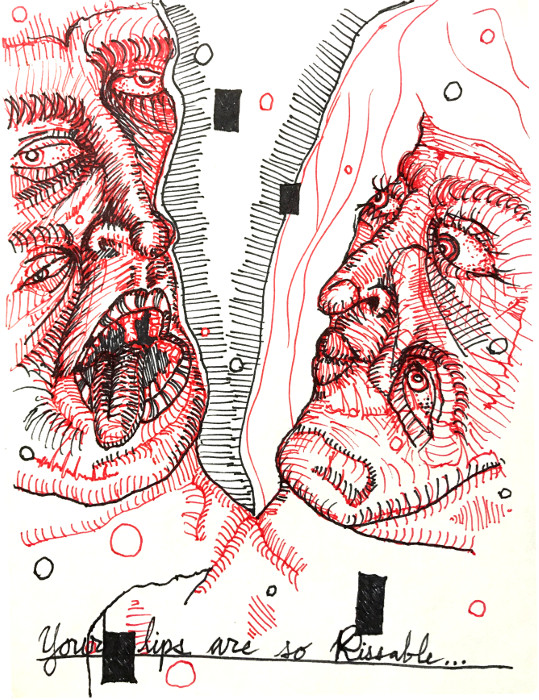 Your lips are so Kissable...